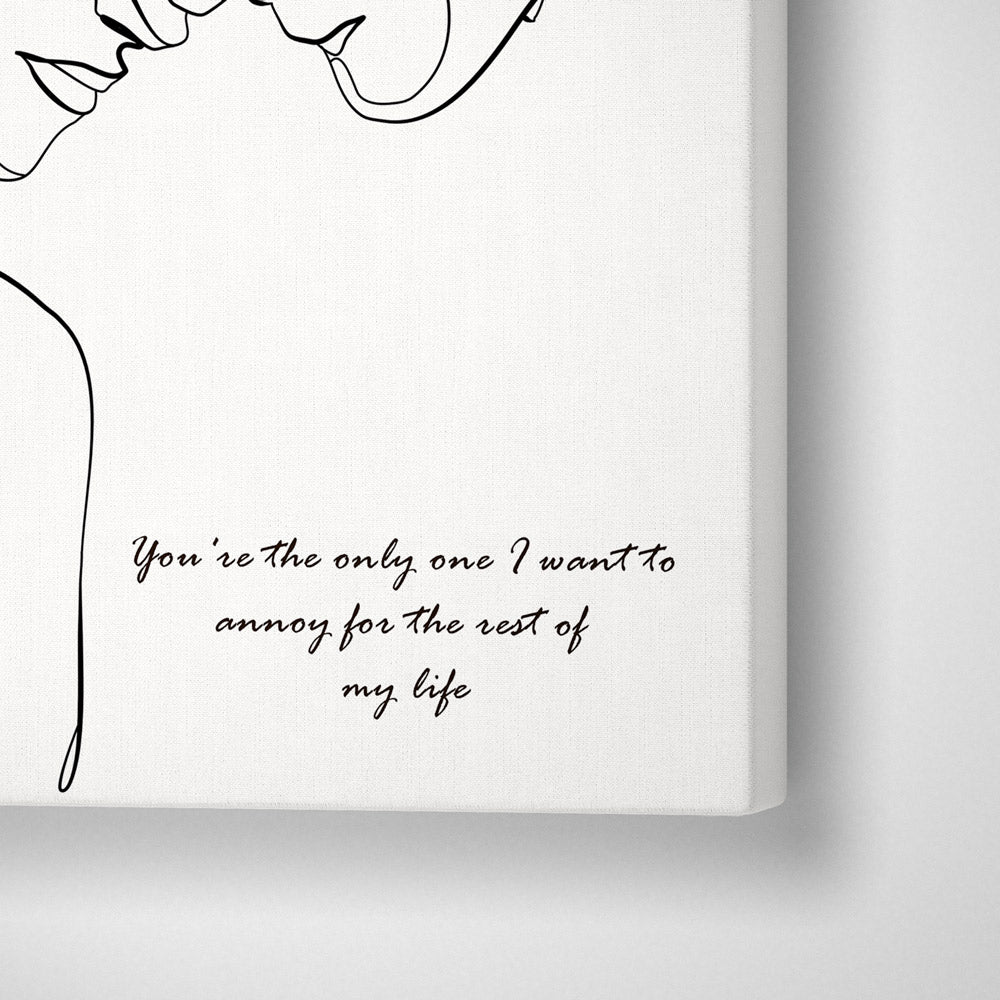 You're the only one I want to
annoy for the rest of
my life